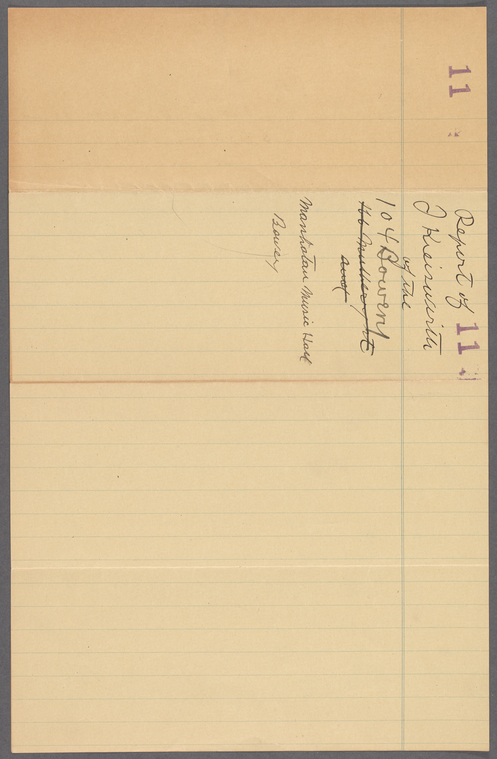 11
Report of 11
J Kreiswirth
of the
104 Bowery
46 Mulberry St
and
Manhatan Music Hall
Bowery